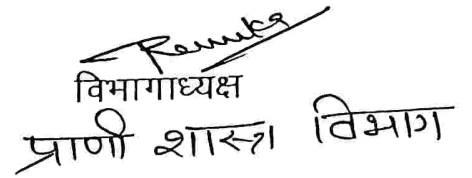 Renuka
विभागाध्यक्ष
प्राणी शास्त्र विभाग